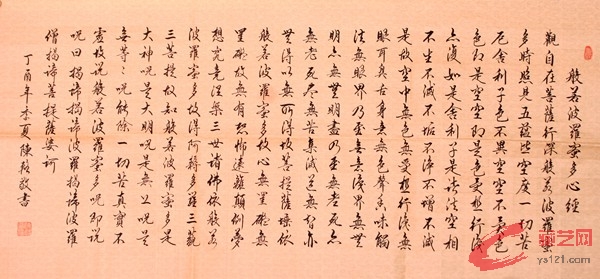 般若波羅蜜多心經
觀自在菩薩行深般若波羅蜜
多時照見五蘊皆空度一切苦
厄舍利子色不異空空不異色
色即是空空即是色受想行識
亦復如是舍利子是諸法空相
不生不滅不垢不淨不增不減
是故空中無色無受想行識無
眼耳鼻舌身意無色聲香味觸
法無眼界乃至無意識界無無
明亦無無明盡乃至無老死亦
無老死盡無苦集滅道無智亦
無得以無所得故菩提薩埵依
般若波羅蜜多故心無罣礙無
罣礙故無有恐怖遠離顛倒夢
想究竟涅槃三世諸佛依般若
波羅蜜多故得阿耨多羅三藐
三菩提故知般若波羅蜜多是
大神咒是大明咒是無上咒是
無等々咒能除一切苦真實不
虛故說般若波羅蜜多咒即說
咒曰揭諦揭諦波羅揭諦波羅
僧揭諦菩提薩婆訶
丁酉年季夏陳敬書
艺网
ys121.com